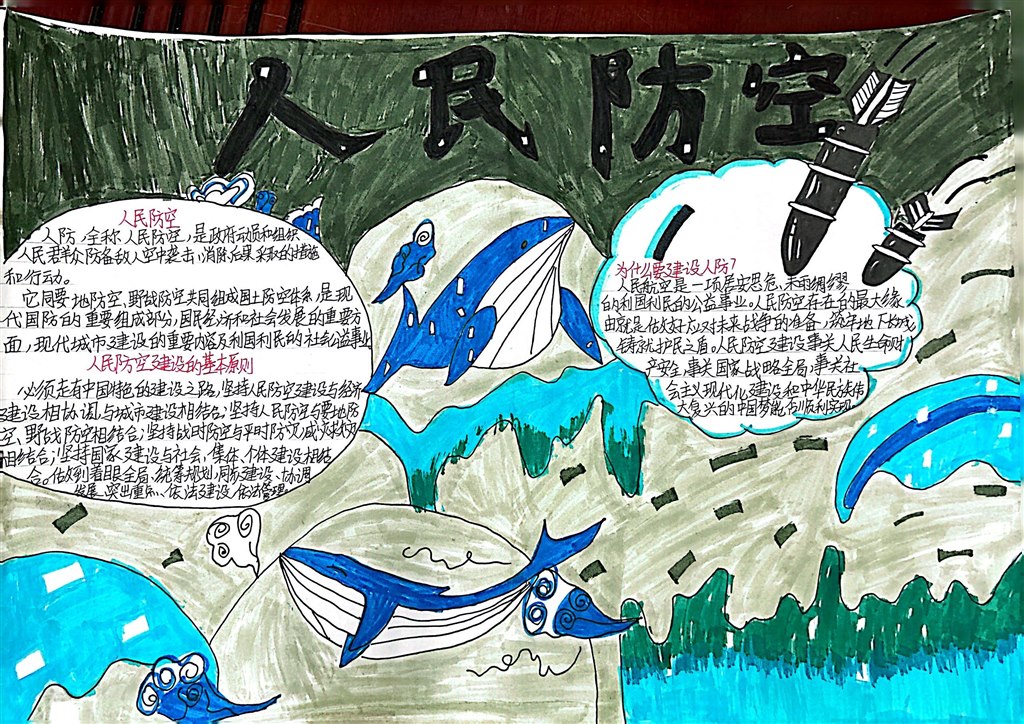 人民防空
人民防空
人防,全称人民防空,是政府动员和组织
人民群众防备敌人空中袭击、消除后果采取的措施
和行动。
它同要地防空、野战防空共同组成国土防空体系,是现
代国防的重要组成部分,国民经济和社会发展的重要方
面,现代城市建设的重要内容及利国利民的社会公益事业
人民防空建设的基本原则
必须走有中国特色的建设之路,坚持人民防空建设与经济
建设相协调与城市建设相结合;坚持人民防空与要地防
空、野战防空相结合;坚持战时防空与平时防灾减灾救灾
相结合;坚持国家建设与社会、集体、个体建设相结
合。做到着眼全局、统筹规划、同步建设、协调
发展、突出重点、依法建设、依法管理
为什么要建设人防?
人民航空是一项居安思危、未雨绸缪
的利国利民的公益事业。人民防空存在的最大缘
由就是做好应对未来战争的准备,筑牢地下长城
铸就护民之盾。人民防空建设事关人民生命财
产安全,事关国家战略全局,事关社
会主义现代化建设和中华民族伟
大复兴的中国梦能否顺利实现